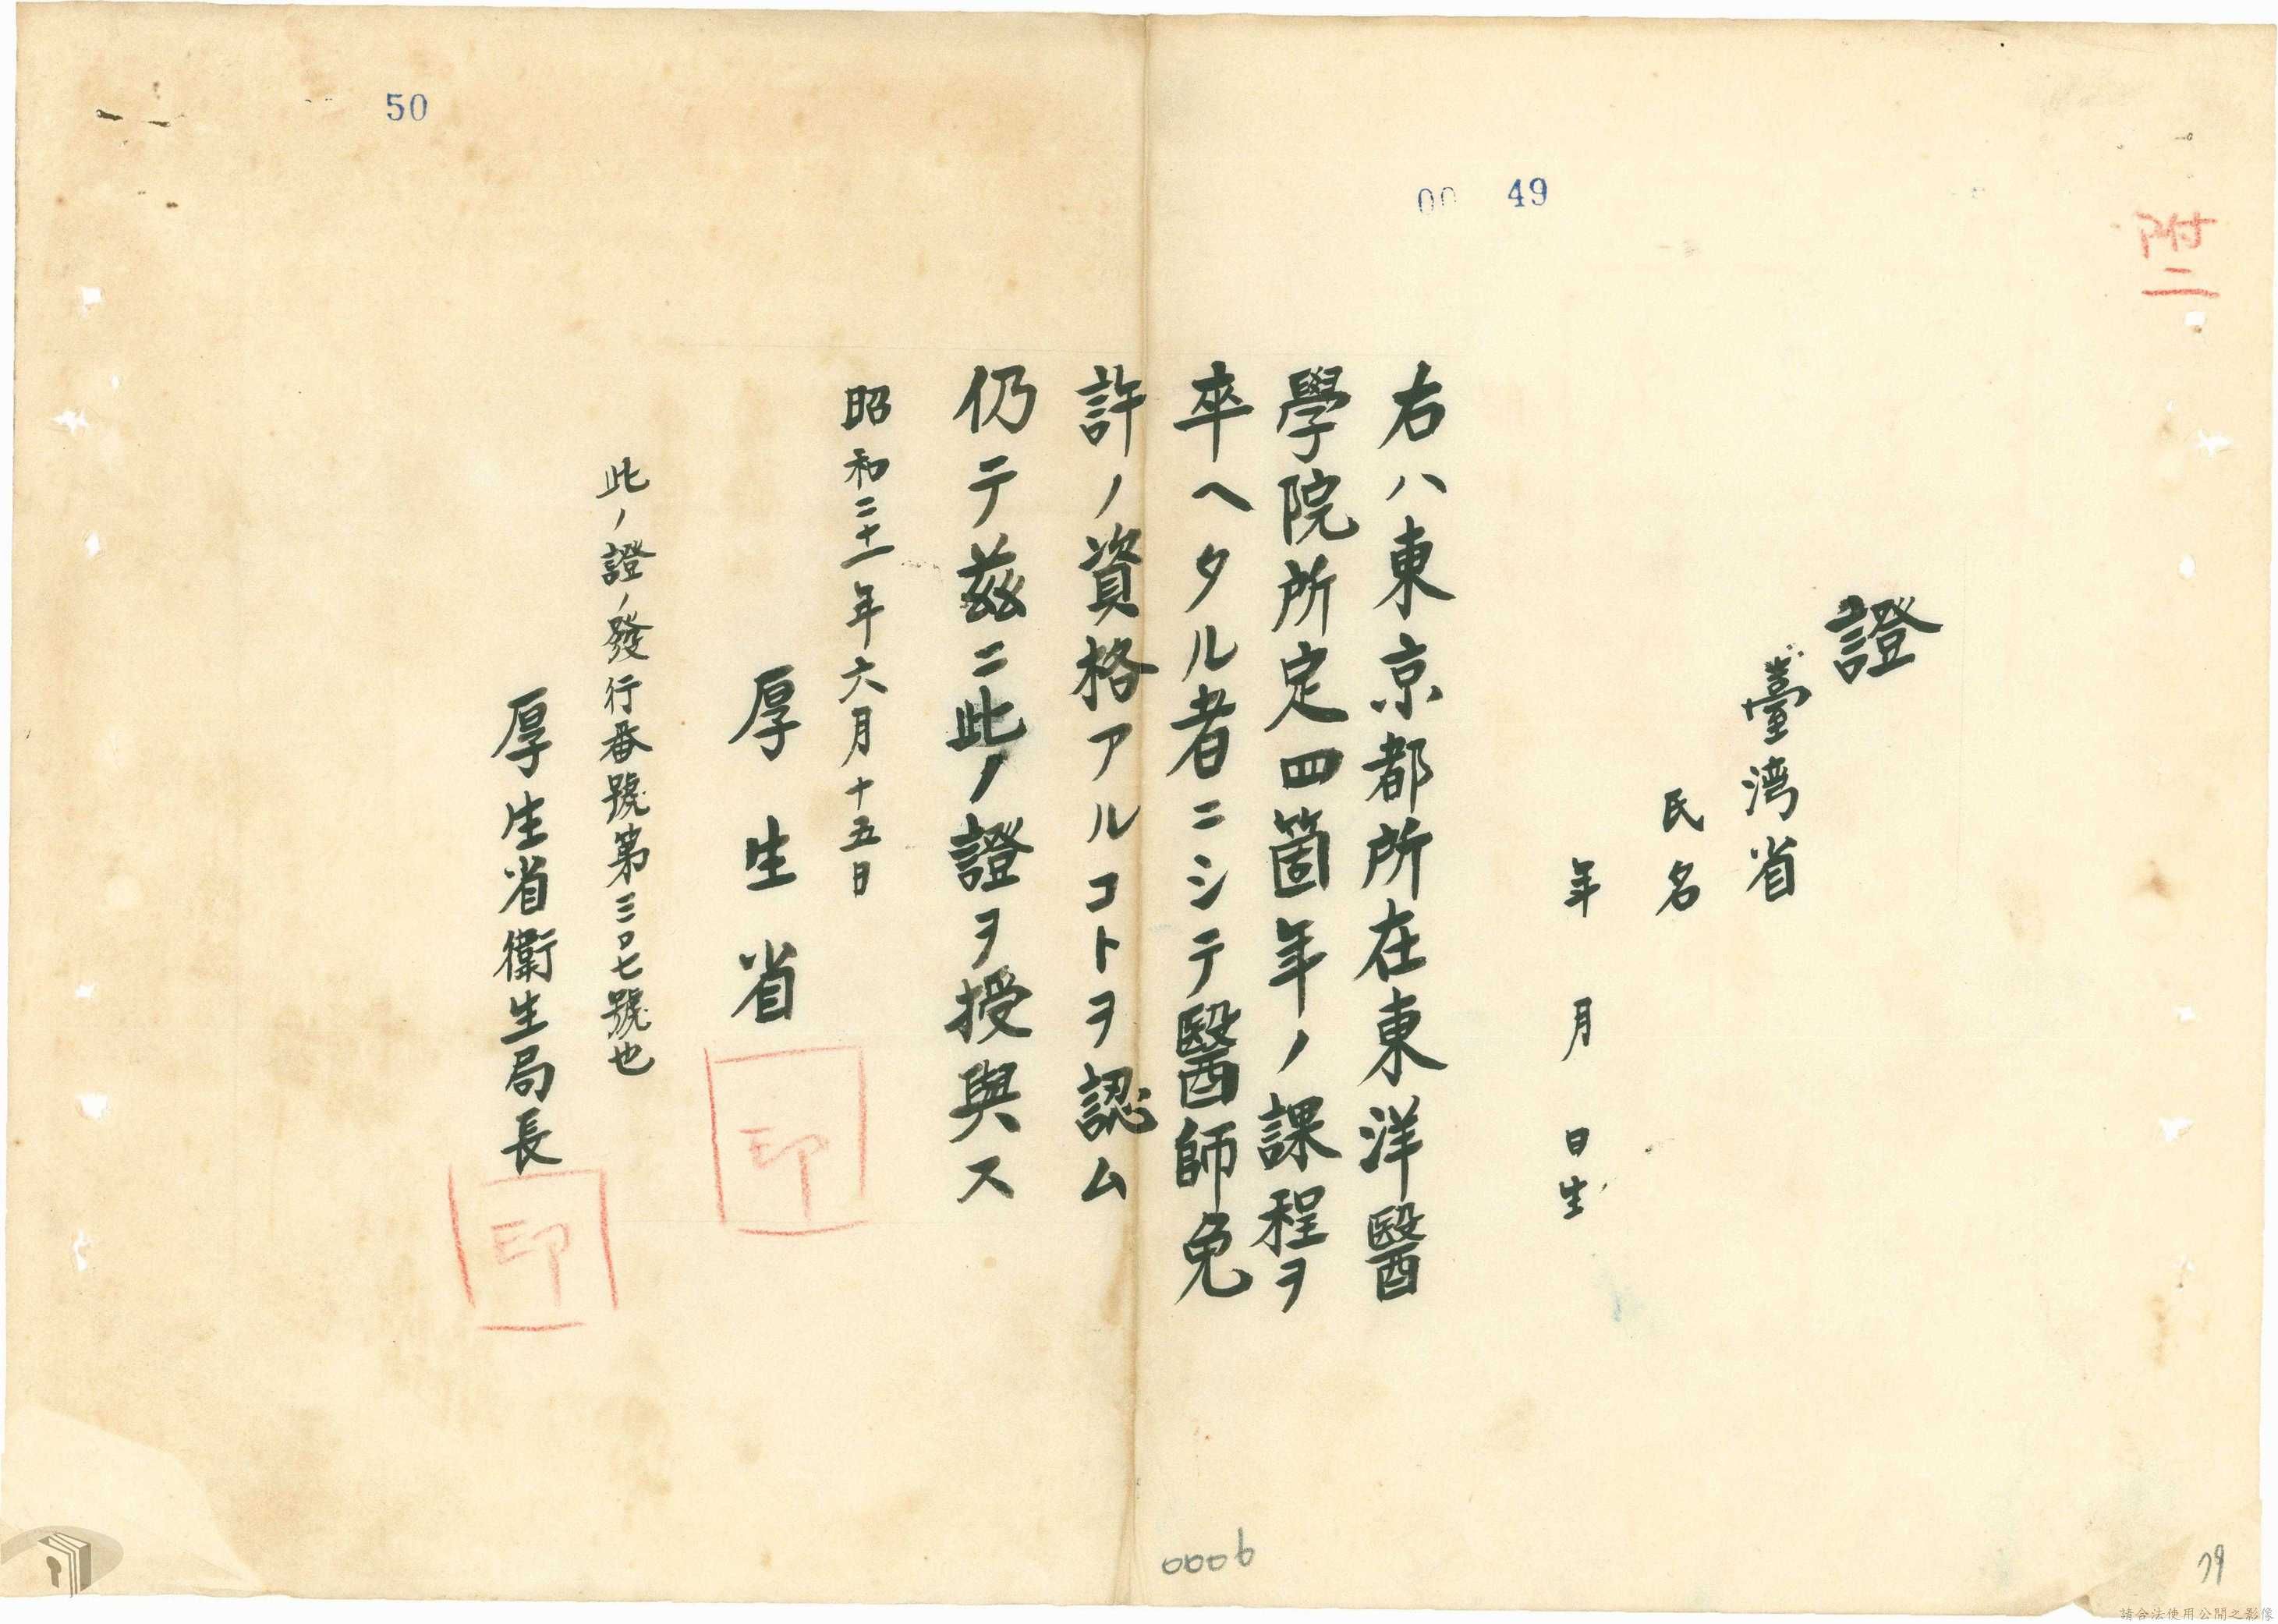 附二
49
00
50
證
臺湾省
氏名
年月日生
右ハ東京都所在東洋醫
學院所定四箇年ノ課程ヲ
卒ヘタル者ニシテ醫師免
許ノ資格アルコトヲ認ム
仍テ茲ニ此ノ證ヲ授與ス
昭和二十一年六月十五日
厚生省
印
此ノ證ノ發行番號第三〇七號也
厚生省衛生局長
印
0006
79
請合法使用公開之影像